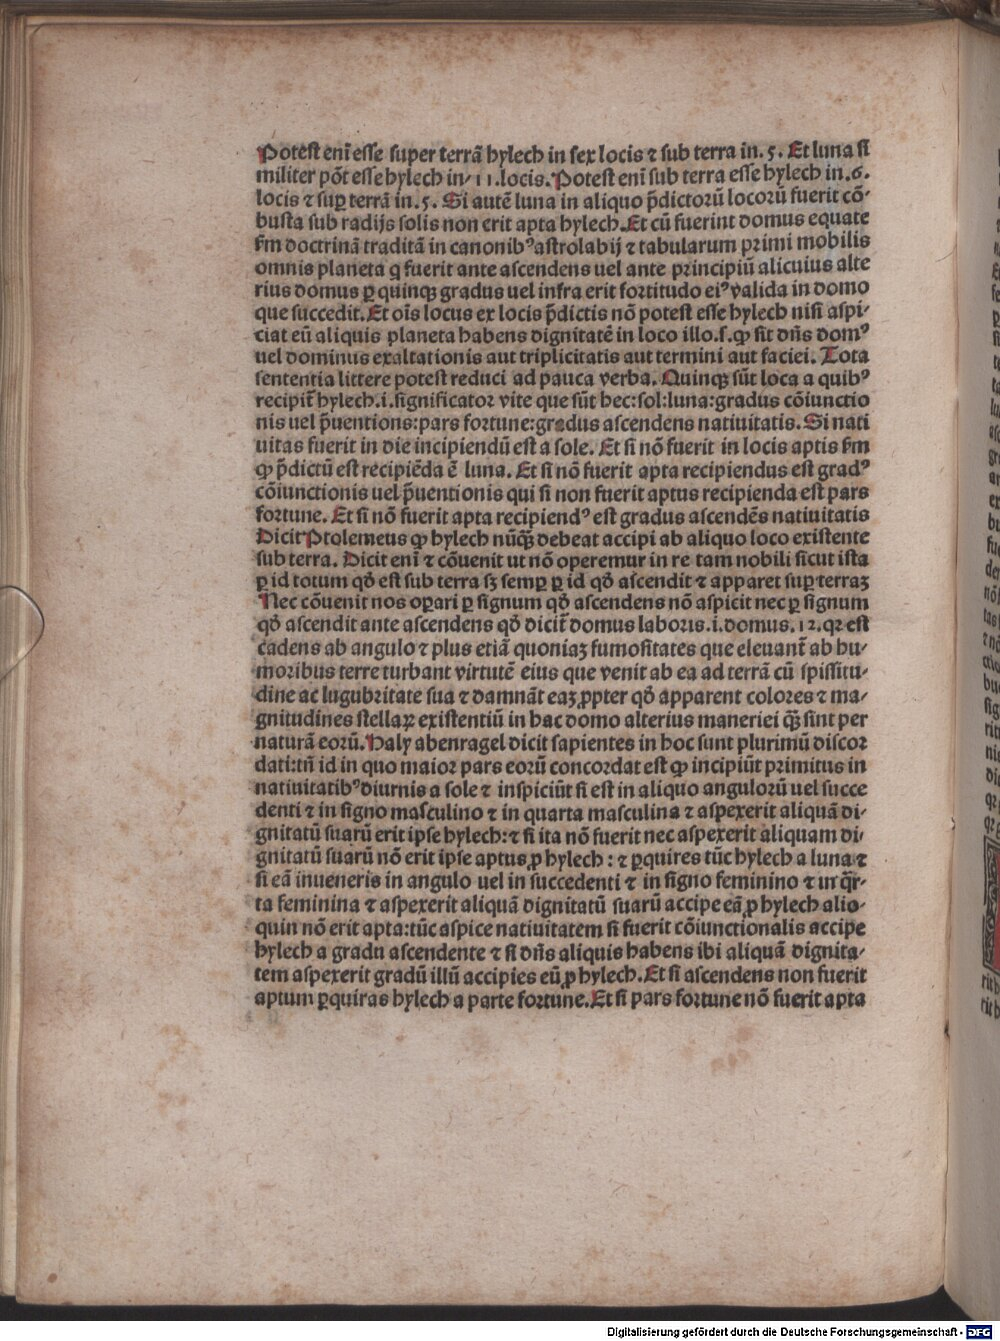 Potest eni᷒ esse super terrã hylech in sex locis ⁊ sub terra in .5. Et luna si
militer põt esse hylech in⸗11.locis. Potest eni᷒ sub terra esse hylech in .6.
locis ⁊ suꝑ terrã in .5. Si autẽ luna in aliquo p̃dictorũ locorũ fuerit cõ⸗
busta sub radijs solis non erit apta hylech. Et cũ fuerint domus equate
ẜm doctrinã traditã in canonibꝰ astrolabij ⁊ tabularum primi mobilis
omnis planeta q̃ fuerit ante ascendens uel ante principiũ alicuius alte
rius domus ꝑ quinqꝫ gradus uel infra erit fortitudo eiꝰ valida in domo
que succedit. Et oĩs locus ex locis p̃dictis nõ potest esse hylech nisi aspi⸗
ciat eũ aliquis planeta habens dignitatẽ in loco illo.ſ.ꝙ sit dñs domꝰ
uel dominus exaltationis aut triplicitatis aut termini aut faciei. Tota
sententia littere potest reduci ad pauca verba. Quinqꝫ sũt loca a quibꝰ
recipit̃ hylech.i.significator vite que sũt hec:sol:luna:gradus cõiunctio
nis uel p̃uentionis:pars fortune:gradus ascendens natiuitatis. Si nati
uitas fuerit in die incipiendũ est a sole. Et si nõ fuerit in locis aptis ẜm
ꝙ p̃dictũ est recipiẽda ẽ luna. Et si nõ fuerit apta recipiendus est gradꝰ
cõiunctionis uel p̃uentionis qui si non fuerit aptus recipienda est pars
fortune. Et si nõ fuerit apta recipiendꝰ est gradus ascendẽs natiuitatis
Dicit Ptolemeus ꝙ hylech nũq̃ꝫ debeat accipi ab aliquo loco existente
sub terra. Dicit eni᷒ ⁊ cõuenit ut nõ operemur in re tam nobili sicut ista
ꝑ id totum qđ est sub terra sꝫ semꝑ ꝑ id qđ ascendit ⁊ apparet suꝑ terraꝫ
Nec cõuenit nos oꝑari ꝑ signum qđ ascendens nõ aspicit nec ꝑ signum
qđ ascendit ante ascendens qđ dicit̃ domus laboris.i.domus.12.qꝛ est
cadens ab angulo ⁊ plus etiã quoniaꝫ fumositates que eleuant̃ ab hu⸗
moribus terre turbant virtutẽ eius que venit ab ea ad terrã cũ spissitu⸗
dine ac lugubritate sua ⁊ damnãt eaꝫ ꝓpter qđ apparent colores ⁊ ma⸗
gnitudines stellaꝝ existentiũ in hac domo alterius maneriei q̃ꝫ sint per
naturã eorũ. Haly abenragel dicit sapientes in hoc sunt plurimũ discor
dati:tñ id in quo maior pars eorũ concordat est ꝙ incipiũt primitus in
natiuitatibꝰ diurnis a sole ⁊ inspiciũt si est in aliquo angulorũ uel succe
denti ⁊ in signo masculino ⁊ in quarta masculina ⁊ aspexerit aliquã di⸗
gnitatũ suarũ erit ipse hylech:⁊ si ita nõ fuerit nec aspexerit aliquam di⸗
gnitatũ suarũ nõ erit ipse aptus ꝓ hylech : ⁊ ꝑquires tũc hylech a luna ⁊
si eã inueneris in angulo uel in succedenti ⁊ in signo feminino ⁊ in q̃r⸗
ta feminina ⁊ aspexerit aliquã dignitatũ suarũ accipe eã ꝓ hylech alio⸗
quin nõ erit apta:tũc aspice natiuitatem si fuerit cõiunctionalis accipe
hylech a gradu ascendente ⁊ si dñs aliquis habens ibi aliquã dignita⸗
tem aspexerit gradũ illũ accipies eũ ꝓ hylech. Et si ascendens non fuerit
aptum ꝑquiras hylech a parte fortune. Et si pars fortune nõ fuerit apta
Digitalisierung gefördert durch die Deutsche Forschungsgemeinschaft - DFG